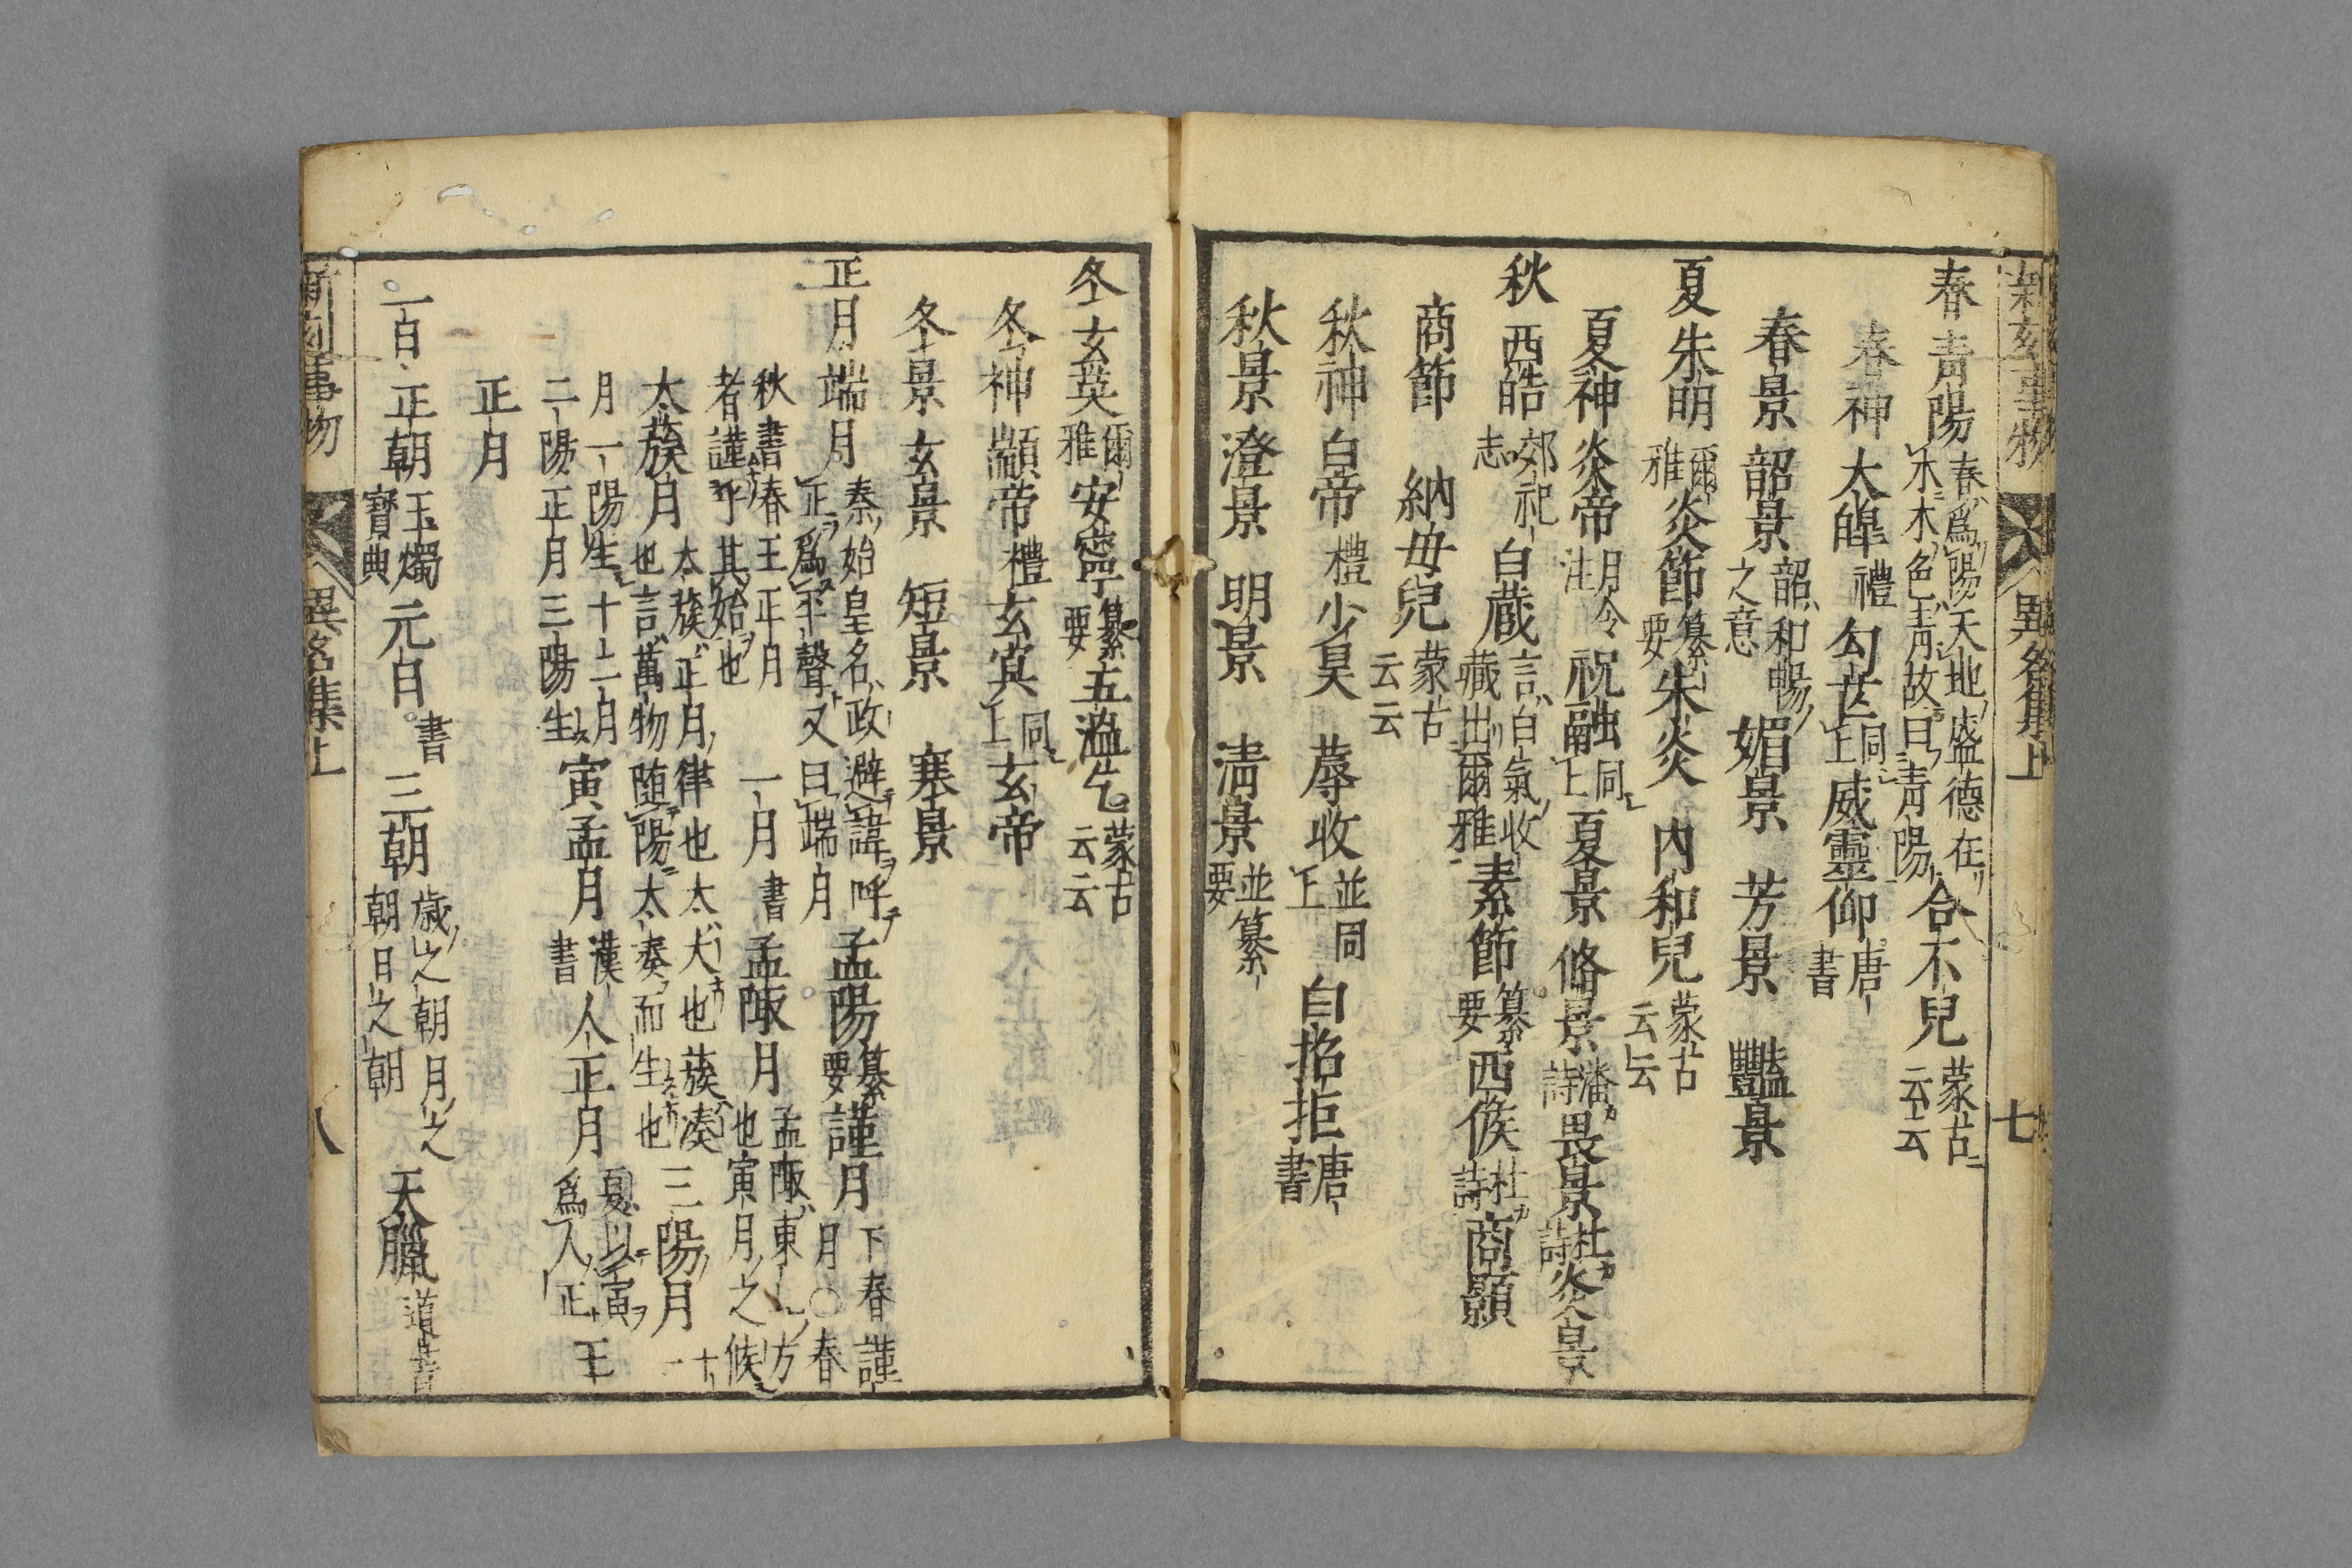 異名集上
七
春 靑陽 春爲陽天地盛德在
木木色靑故曰靑陽 合不兒 蒙古
云云
春神 太皡 禮 勾芒 同
上 威靈仰 唐
書
春景 韶景 韶和暢
之意 媚景 芳景 豔景
夏 朱明 爾
雅 炎節 纂
要 朱炎 內和兒 蒙古
云云
夏神 炎帝 月令
注 祝融 同
上 夏景 脩景 潘
詩 畏景 杜
詩 炎景
秋 西皓 郊祀
志 白蔵 言白氣收
藏出爾雅 素節 纂
要 西候 杜
詩 商顥
商節 納毋兒 蒙古
云云
秋神 白帝 禮 少昊 蓐收 並同
上 白招拒 唐
書
秋景 澄景 明景 淸景 並纂
要
冬 玄英 爾
雅 安寧 纂
要 五溢乞 蒙古
云云
冬神 顓帝 禮 玄冥 同
上 玄帝
冬景 玄景 短景 寒景
正月 端月 秦始皇名政避諱呼
正爲平聲又曰端月 孟陽 纂
要 謹月 下春謹
月○春
秋書春王正月
者謹乎其始也 一月 書 孟陬月 孟陬東方
也寅月之候
太蔟月 太蔟正月律也太大也蔟湊
也言萬物随陽太奏而生也 三陽月 十一
月一陽生十二月
二陽正月三陽生 寅孟月 漢
書 人正月 夏以寅
爲人正 王
正月
一日 正朝 玉燭
寶典 元日 書 三朝 歲之朝月之
朝日之朝 天臘 道書
異名集上
八